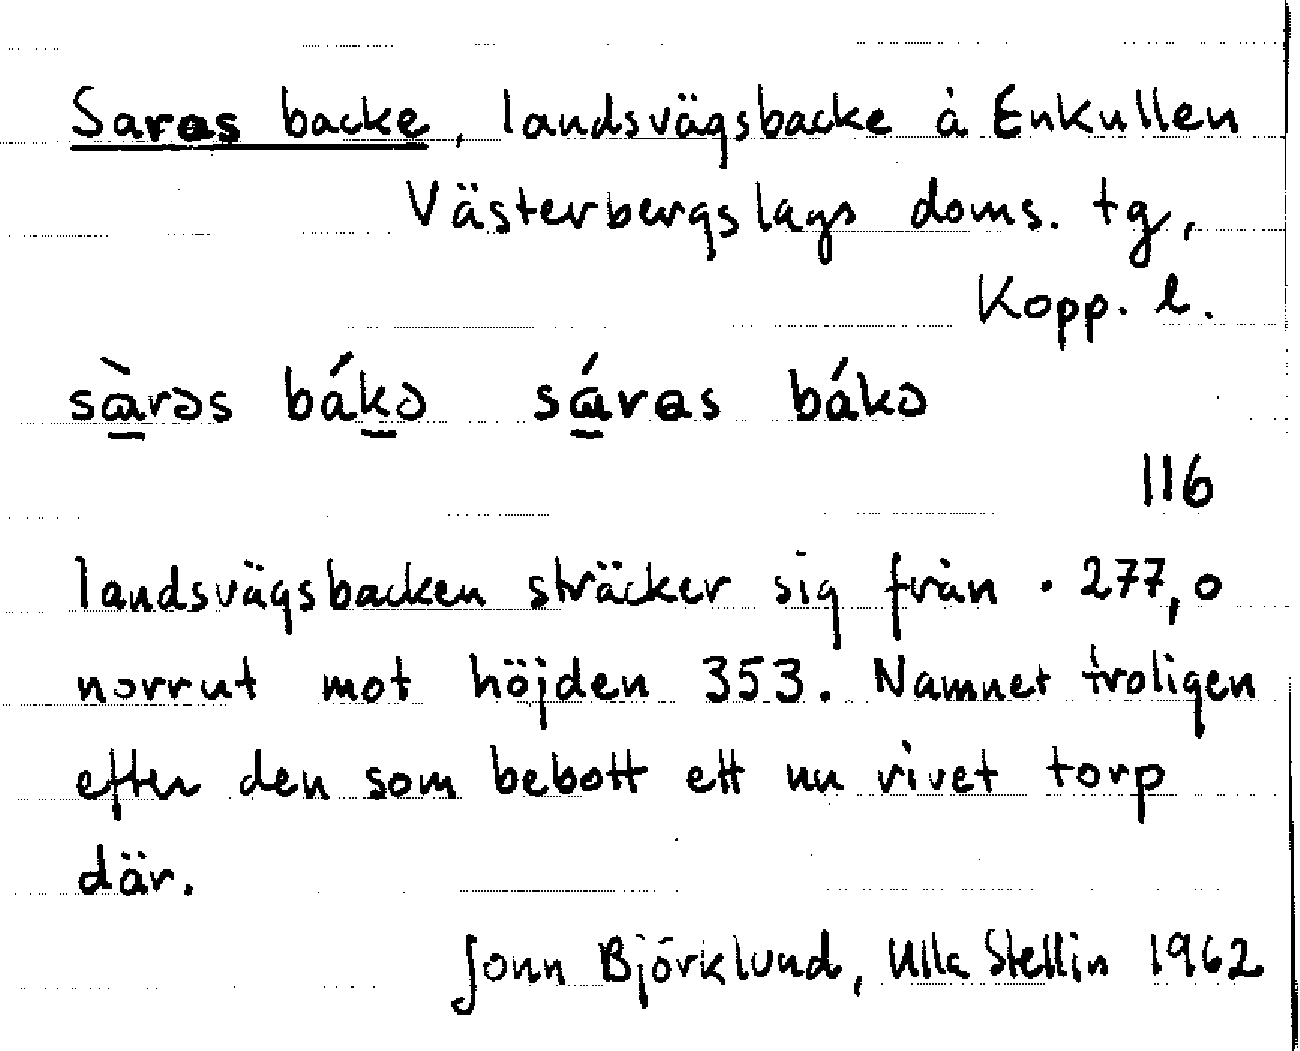 Saras backe, landsvägsbacke å Enkullen
Västerbergslags doms. tg,
Kopp. l.
sàrəs bákə sáras bákə
116
landsvägsbacken sträcker sig från · 277,0
norrut mot höjden 353. Namnet troligen
efter den som bebott ett nu rivet torp
där.
Jonn Björklund, Ulla Stellin 1962